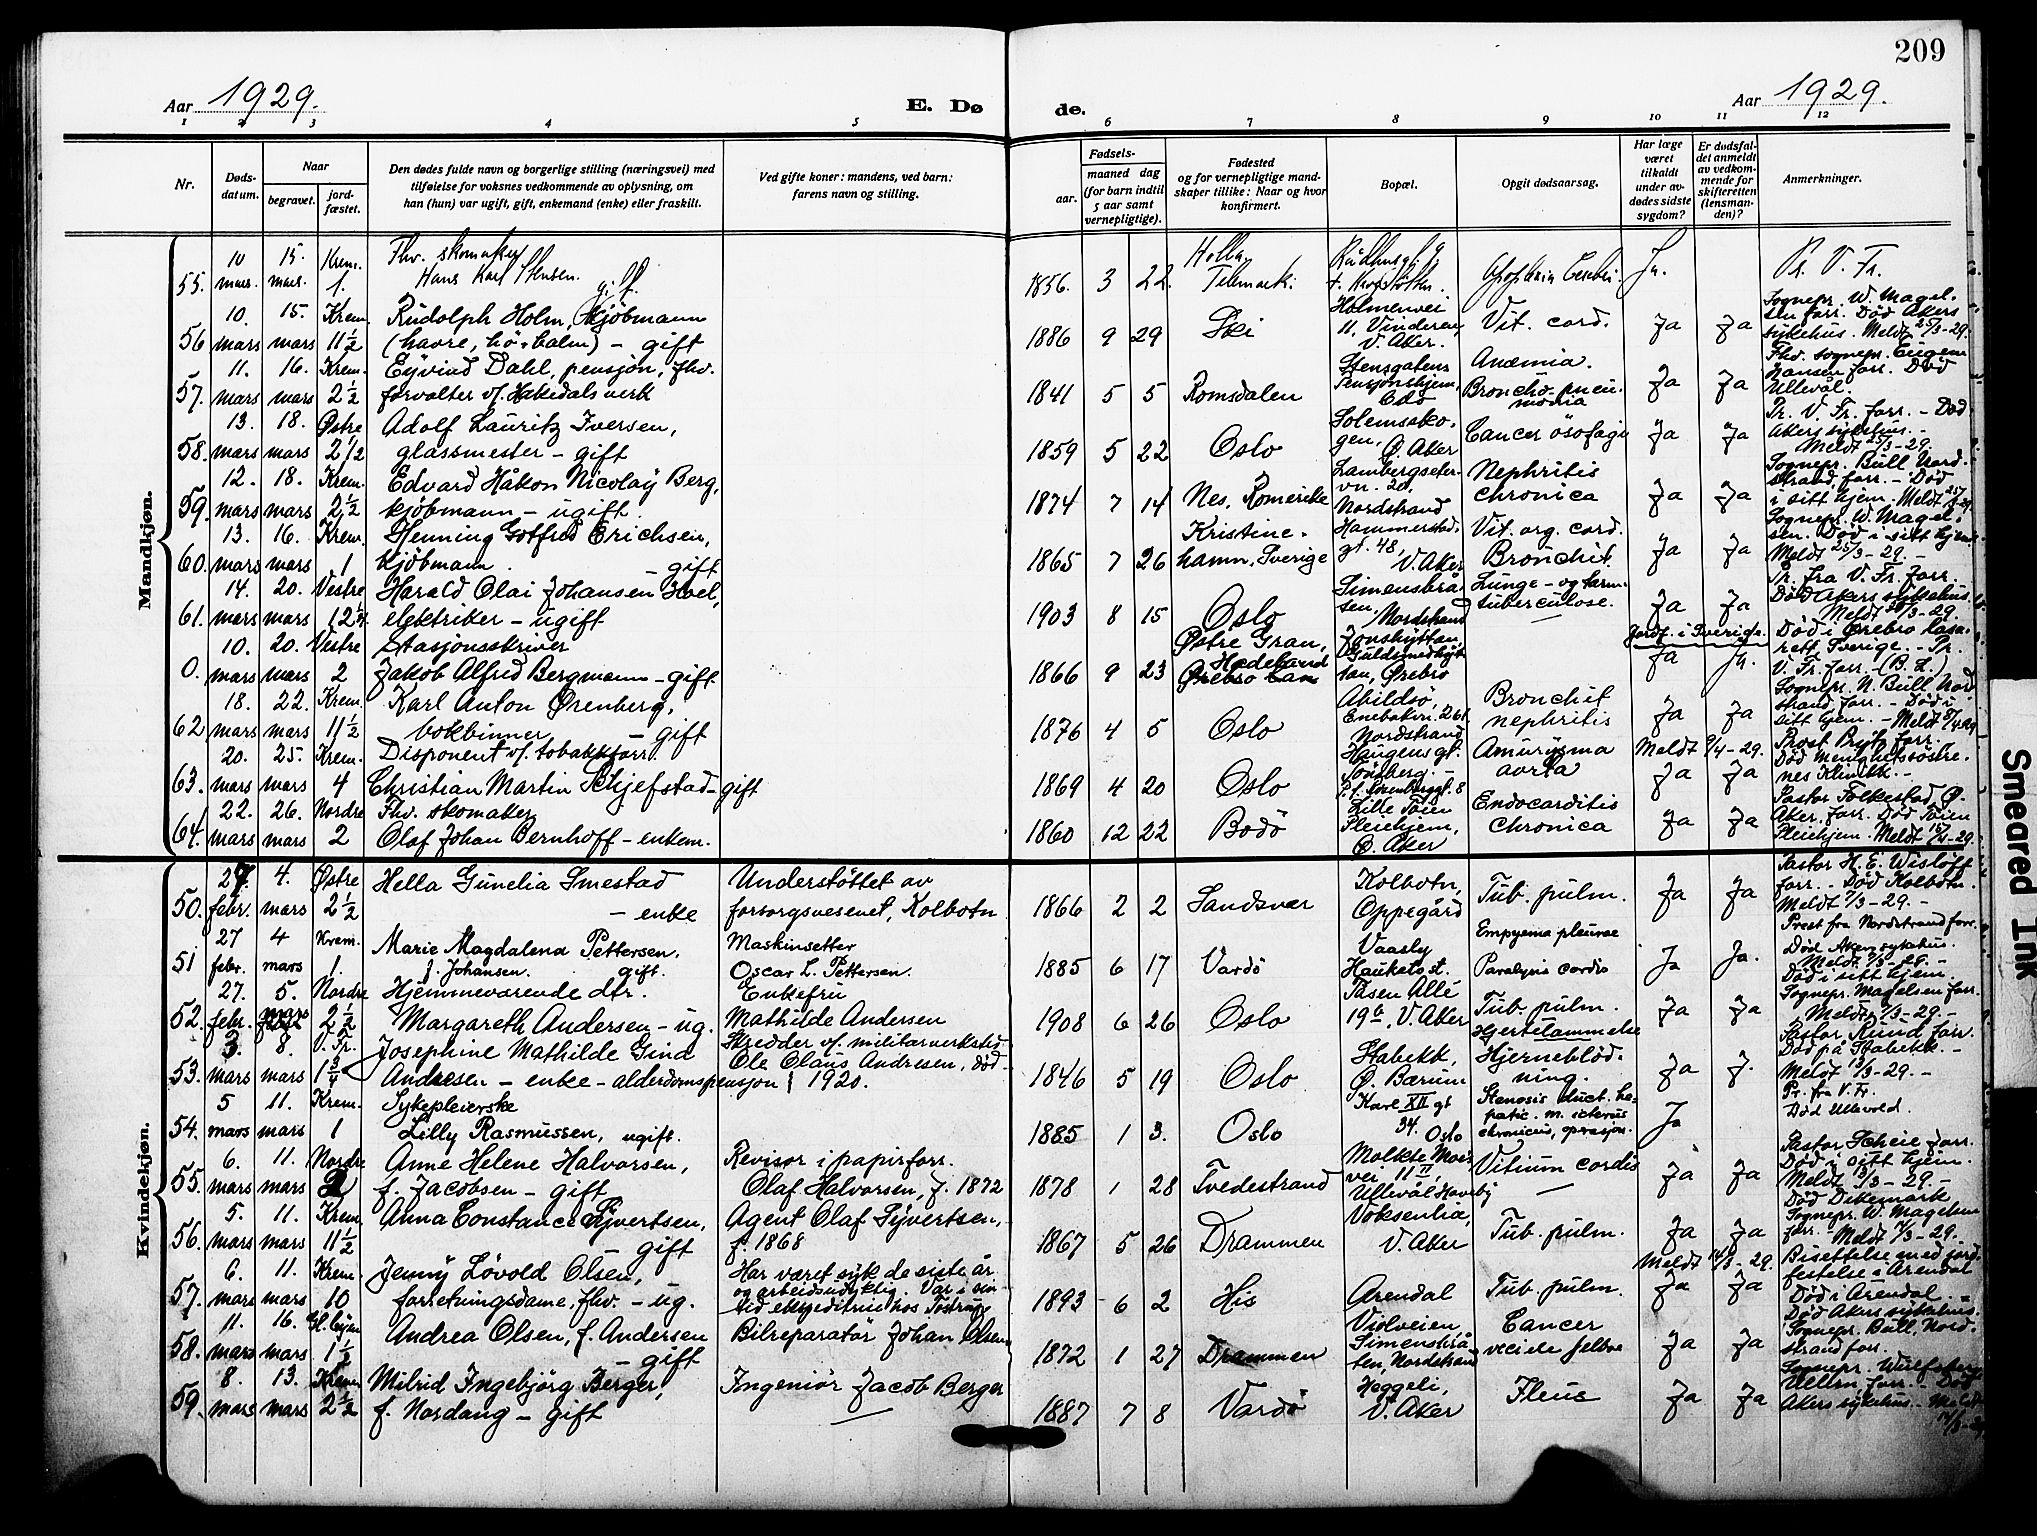 209
Aar 1929.
E. Dø de.
Aar 1929.
1 2 3 4 5 6 7 8 9 10 11 12
Nr.
Døds-
datum.
Naar
begravet.
jord-
fæstet.
Den dødes fulde navn og borgerlige stilling (næringsvei) med
tilføielse for voksnes vedkommende av oplysning, om
han (hun) var ugift, gift, enkemand (enke) eller fraskilt.
Ved gifte koner: mandens, ved barn:
farens navn og stilling.
Fødsels-
aar.
maaned dag
(for barn indtil
5 aar samt
vernepligtige).
Fødested
og for vernepligtige mand-
skaper tillike: Naar og hvor
konfirmert.
Bopæl.
Opgit dødsaarsag.
Har læge
været
tilkaldt
under av-
dødes sidste
sygdom?
Er dødsfal-
det anmeldt
av vedkom-
mende for
skifteretten
(lensman-
den)?
Anmerkninger.
Mandkjøn.
55. 10 mars. 15. mars. Krem. 1. Fhv. skomaker
Hans Karl Stensen. gift.
1856. 3 22. Holla, Telemark. Apoplexia Cerebri. Ja. Pr. V. Fr.
56 10. mars 15. mars Krem. 11½ Rudolph Holm, Kjøbmann
(havre, hö + halm) – gift
1886 9 29 Ski Holmenvei
11, Vinderen,
V. Aker. Vit. cord. Ja Ja Sognepr. W. Magel-
sen forr. Död Akers
sykehus. Meldt 25/3-29.
57. 11. mars 16. mars Krem. 2½ Eyvind Dahl, pensjon. fhv.
forvalter v/. Hakedals verk
1841 5 5 Romsdalen Stensgatens
Pensjonshjem,
Oslo Anæmia.
Broncho-pneu-
monia Ja Ja Fhv. sognepr. Eugen
Hansen forr. Död
Ullevål.
58. 13. mars 18. mars Østre 2½ Adolf Lauritz Iversen,
glassmester – gift
1859 5 22 Oslo Solemsko-
gen, Ø. Aker Cancer ösofagi Ja Ja Pr. V. Fr. forr. – Död
Akers sykehus. –
Meldt 25/3-29.
59. 12. mars 18. mars Krem. 2½ Edvard Håkon Nicolay Berg,
kjøbmann – ugift.
1874 7 14 Nes, Romerike Lambergseter-
vn. 20,
Nordstrand Nephritis
chronica Ja Ja Sognepr. Bull Nord-
strand, forr. – Död
i sitt hjem. Meldt 25/3-29.
60. 13. mars 16. mars Krem. 1 Henning Gotfred Erichsen,
kjöbmann. – gift
1865 7 26 Kristine-
hamn, Sverige Hammerstad-
gt. 48,
V. Aker Vit. org. cord.
Bronchit. Ja Ja Sognepr. W. Magel-
sen. Död i sitt hjem.
Meldt 25/3-29. –
61. 14. mars 20. mars Vestre 12¼ Harald Olai Johansen Hoel,
elektriker – ugift
1903 8 15 Oslo Simensbrå-
ten, Nordstrand Lunge- og tarm-
tuberculose. Ja Ja Pr. fra V. Fr. forr.
Död Akers sykehus.
Meldt 25/3-29.
0. 10. mars 20. mars Vestre 2 Stasjonsskriver
Jakob Alfred Bergmann – gift
1866 9 23 Østre Gran,
Hedeland
Ørebro Län Jonshyttan,
Guldsmedhyt-
tan, Ørebro Jordf. i Sverige.
Ja Ja. Död i Ørebro lasa-
rett, Sverige. – Pr.
V. Fr. forr. – (B. L.)
62 18. mars 22. mars Krem. 11½ Karl Anton Ørenberg,
bokbinner – gift
1876 4 5 Oslo Abildsö,
Enebakvn. 261
Nordstrand Bronchit
nephritis Ja Ja Sognepr. N. Bull Nord
strand forr. – Död i
sitt hjem. – Meldt
63. 20. mars 25. mars Krem. 4 Disponent v/. tobakkforr.
Christian Martin Schjefstad – gift
1869 4 20 Oslo Haugens gt.
Amurysma
aorta Meldt 9/4-29.
Ja Ja Prost Brytz forr.
Död Menighetssöstre-
nes Klinikk. –
64. 22. mars 26. mars Nordre 2 Fhv. skomaker
Olaf Johan Bernhoff – enkem.
1860 12 22 Bodö Lille Töien
Pleiehjem,
Ø. Aker Endocarditis
chronica Ja Ja Pastor Folkestad Ø.
Aker, forr. Död Töien
Pleiehjem. Meldt 15/4-29.
Kvindekjøn.
50. 27. febr. 4. mars Østre 2½ Hella Gunelia Smestad
– enke Understöttet av
forsorgsvesenet, Kolbotn
1866 2 2 Sandsvær Kolbotn,
Oppegård Tub. pulm. Ja Ja Pastor H. E. Wislöff
forr. – Död Kolbotn.
Meldt 7/3-29. –
51 27 febr. 4 mars Krem. 1. Marie Magdalena Pettersen,
f. Johansen. gift. Maskinsetter
Oscar L. Pettersen.
1885 6 17 Vardö Vaasly
Hauketo st. Empyema pleurae
Paralysis cordis Ja Ja. Prest fra Nordstrand forr.
Død Aker sykehus.
Meldt 7/3-29. –
52. 27. febr. 5. mars Nordre 2½ Hjemmeværende dtr.
Margareth Andersen – ug. Enkefru
Mathilde Andersen
1908 6 26 Oslo Tåsen Allé
19b, V. Aker Tub. pulm.
Hjertelammelse Ja Ja Död i sitt hjem.
Sognepr. Magelsen forr.
Meldt 7/3-29. –
53. 3. mars 8. mars V. Fr. 1¾ Josephine Mathilde Gina
Andresen – enke – alderdomspensjon Skredder v/. militærverksted
Ole Claus Andresen, död
1920.
1846 5 19 Oslo Stabekk,
Ø. Bærum Hjerneblöd-
ning. Ja J. Pastor Rund forr.
Död på Stabekk. –
Meldt 13/3-29. –
54. 5 mars 11. mars Krem. 1 Sykepleierske
Lilly Rasmussen, ugift.
1885 1 3. Oslo Karl XII gt
34. Oslo Stenosis duct. he-
patic. m. icterus
chronicus, operasjon. Ja Pr. fra V. Fr.
Død Ullevold.
55. 6. mars 11. mars Nordre 2 Anne Helene Halvorsen,
f. Jacobsen – gift Revisor i papirforr.
Olaf Halvorsen, f. 1872
1878 1 28 Tvedestrand Moltke Moes
vei 11 II,
Ullevål Haveby Vitium cordis
Ja Ja Pastor Scheie forr.
Död i sitt hjem.
Meldt 13/3-29. –
56. 5. mars 11. mars Krem. 11½ Anna Constance Syvertsen,
– gift Agent Olaf Syvertsen,
f. 1868
1867 5 26 Drammen Voksenlia,
V. Aker Tub. pulm. Ja Ja Död Dikemark
Sognepr. W. Magelsen
forr. – Meldt 7/3-29.
57. 6. mars 11. mars Krem. 10 Jenny Lövold Olsen,
forretningsdame, fhv. – ug. Har været syk de siste år
og arbeidsudyktig. Var i sin
tid ekspeditrice hos Tostrup
1893 6 2 His Arendal Tub. pulm. Meldt 14/3-29.
Ja Ja Bisettelse med jord-
festelse i Arendal
Död i Arendal. –
58. 11. mars 16. mars 1½ Andrea Olsen, f. Andersen
– gift Bilreparatör Johan Olsen
1872 1 27 Drammen Violveien
Simensbrå-
ten, Nordstrand Cancer
vesicae felleae Ja Ja Död Akers sykehus.
Sognepr. Bull, Nord-
strand forr.
59. 8. mars 13. mars Krem 2½ Milrid Ingebjörg Berger,
f. Nordang – gift Ingeniör Jacob Berger
1887 7 8 Vardö Heggeli,
V. Aker Ileus Ja Ja Sognepr. Wulfsberg
Ullern forr. – Död
Akers sykehus. – Meldt
14/3-29.
Smeared Ink